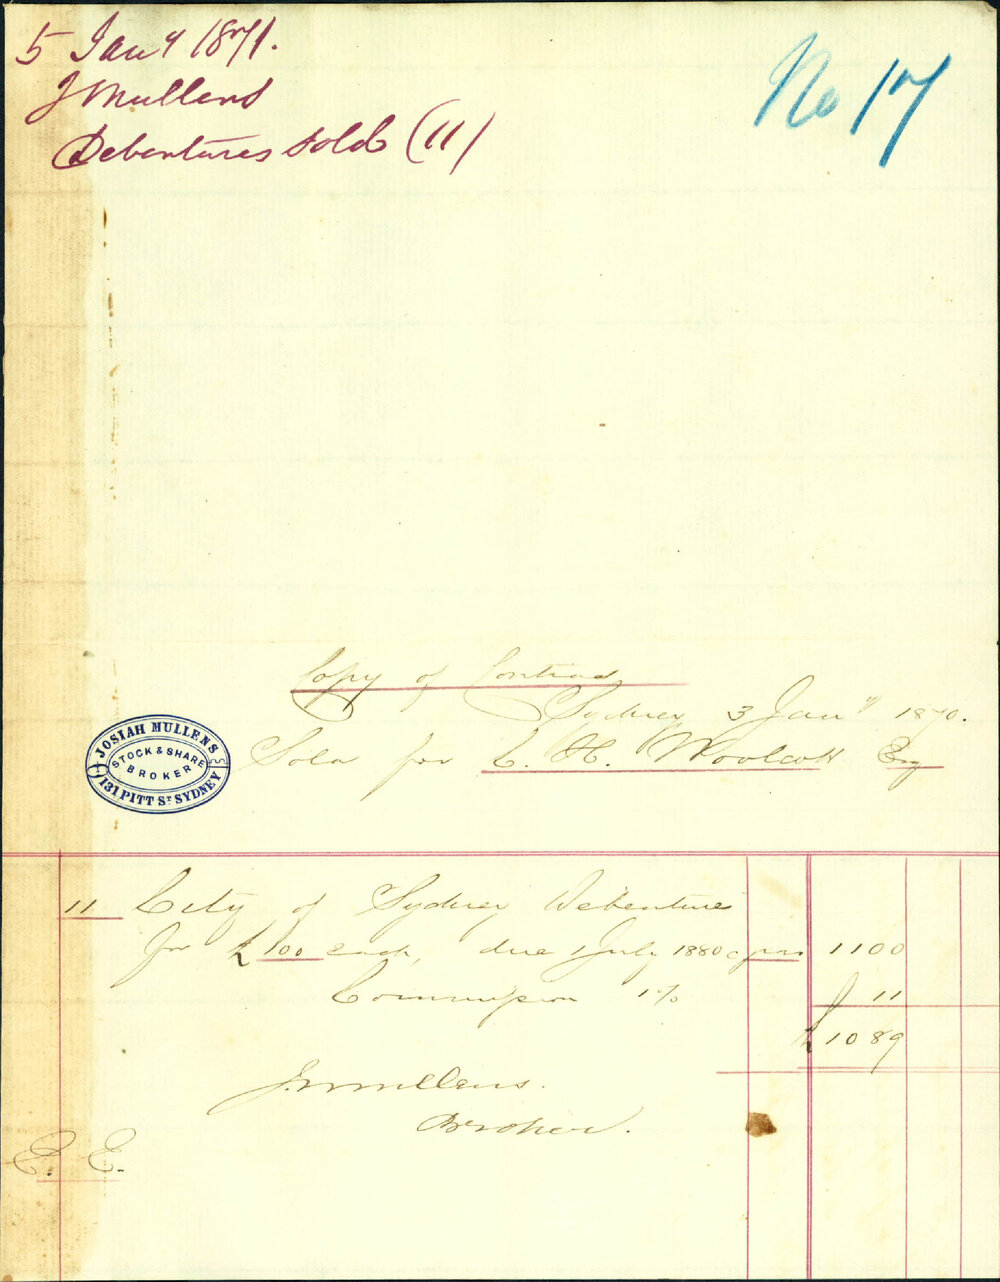 5 Jany 1871.
J Mullens
Debentures sold (11)
No 17
Copy of Contract
Sydney 3 Jany 1870.
Sold for C. H. Woolcott Esq
JOSIAH MULLENS
STOCK & SHARE
BROKER
131 PITT ST SYDNEY
11 City of Sydney Debentures
for £100 each, due 1 July 1880 @ par 1100
Commission 1% 11
£1089
J. Mullens.
Broker.
E. E.